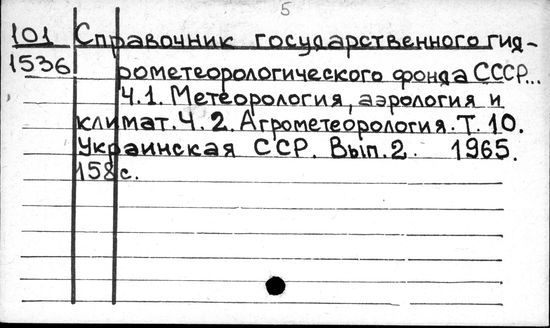 5
101 Справочник государственного гид-
1536 рометеорологического фонда СССР...
Ч.1. Метеорология, аэрология и
климат. Ч. 2. Агрометеорология. Т. 10.
Украинская ССР. Вып. 2. 1965.
158 с.